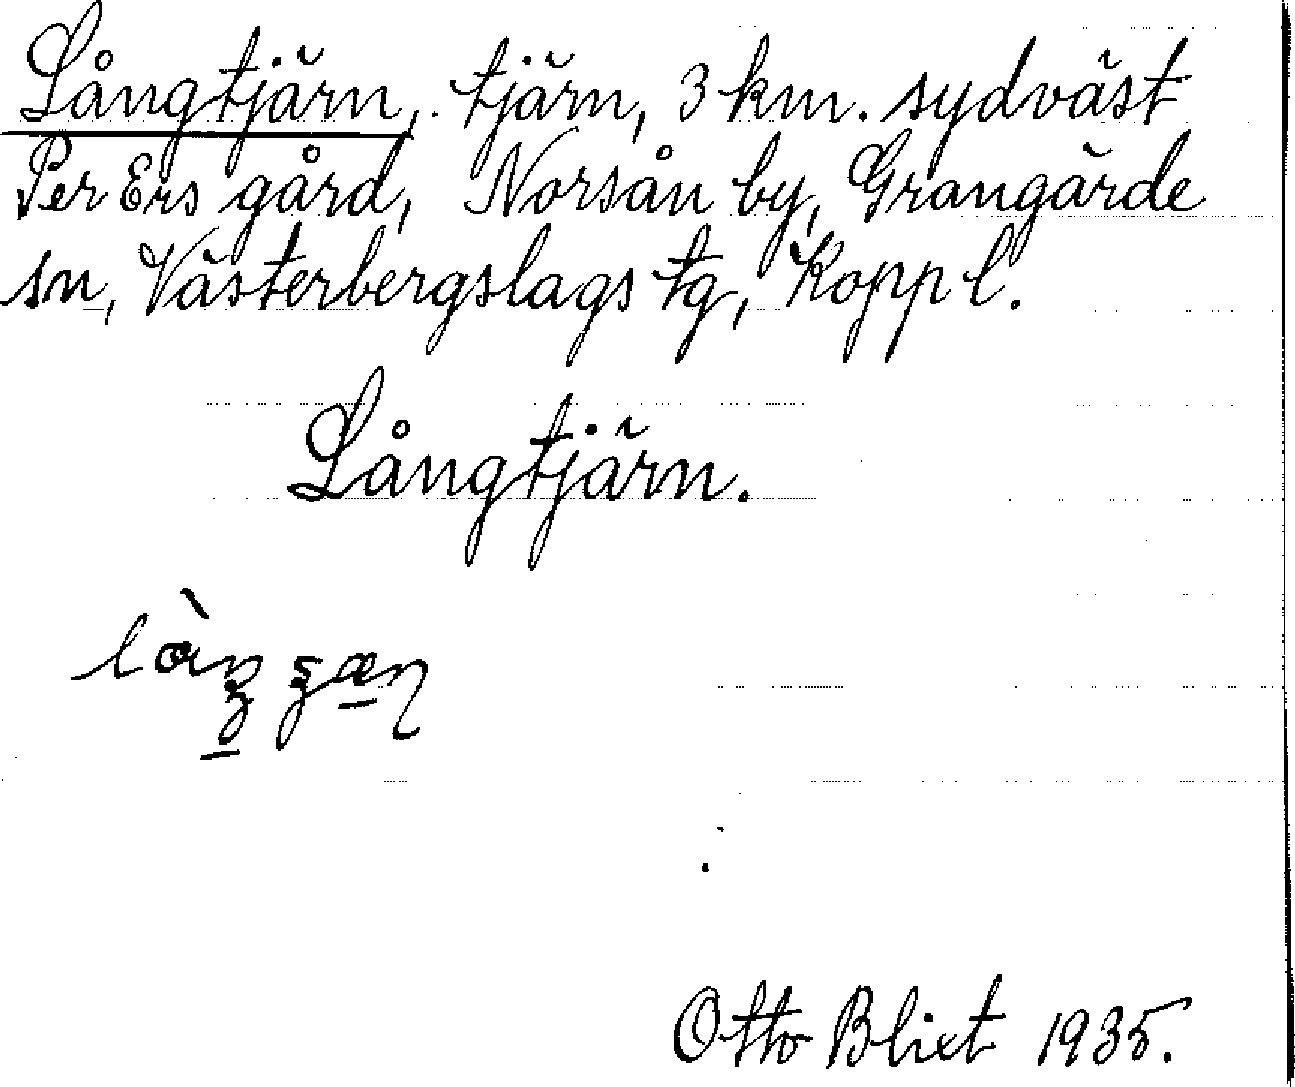 Långtjärn, tjärn, 3 km. sydväst
Per Ers gård, Norsån by, Grangärde
sn, Västerbergslags tg, Kopp l.
Långtjärn.
Otto Blixt 1935.